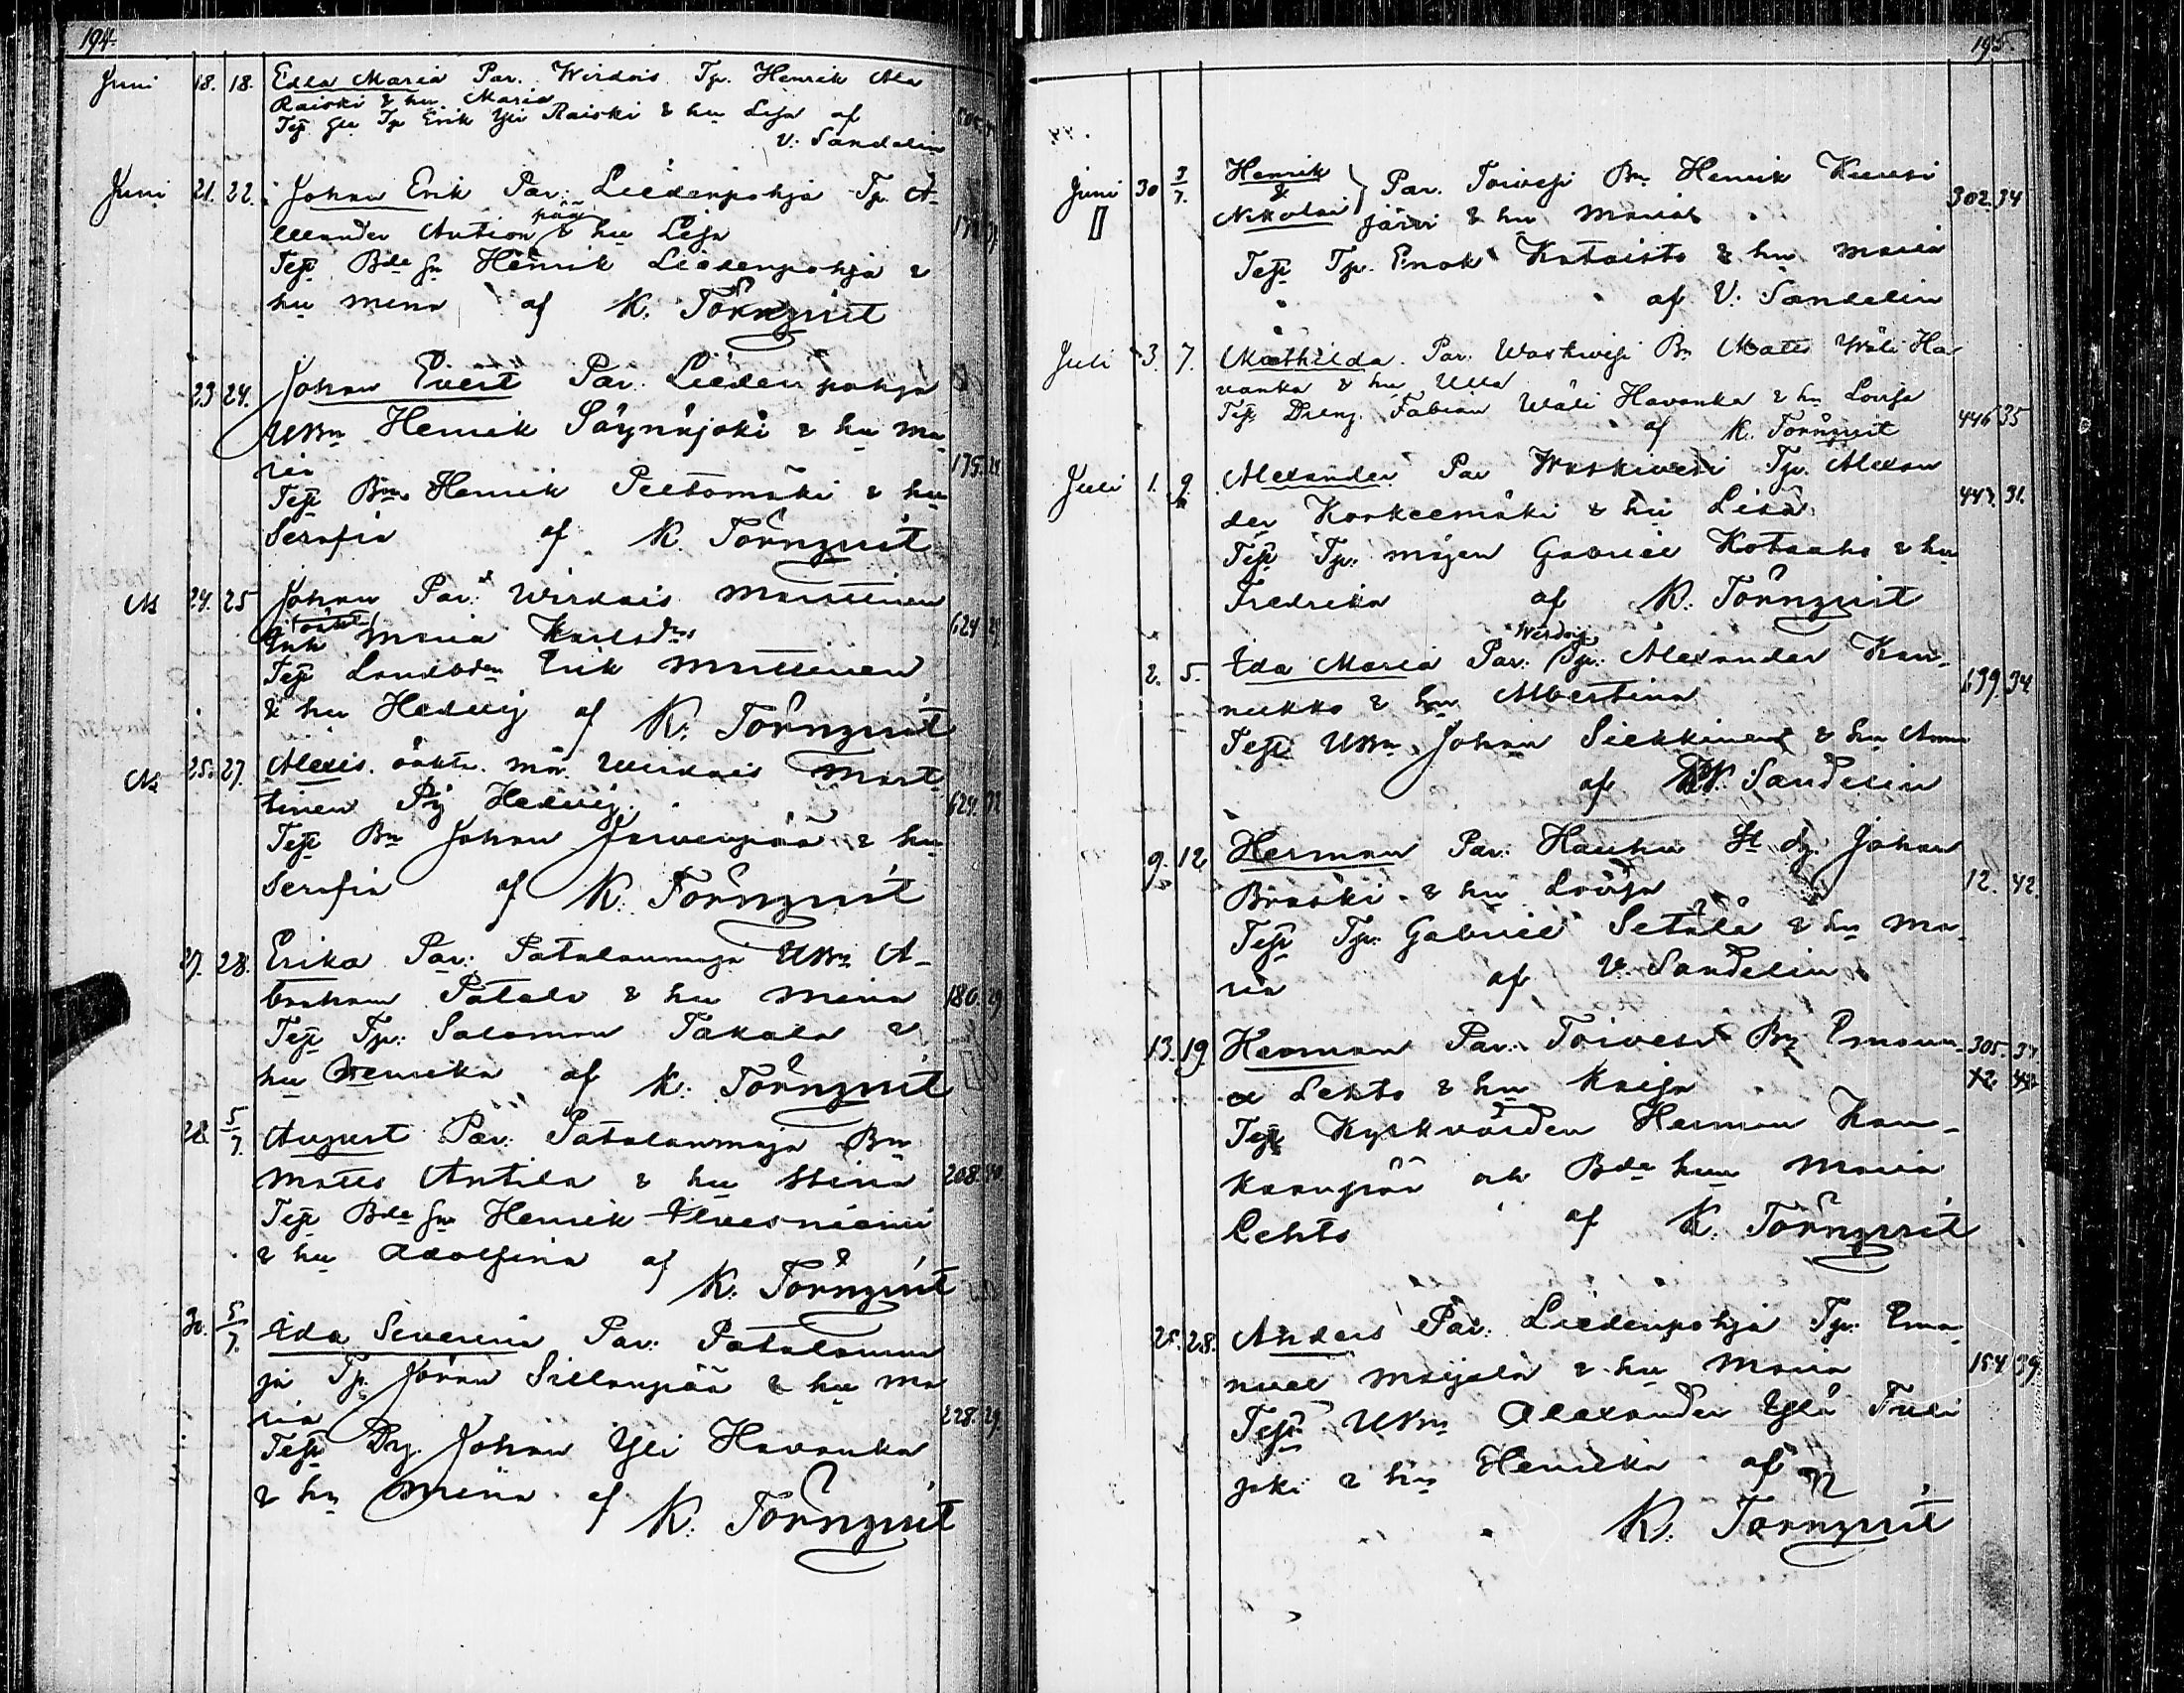 194.
Juni 18. 18. Edla Maria Par. Wirdois Tp. Henrik Ala
Raiski & hu Maria
Test Gle Tp Erik Yli Raiski & hu Lisa af
V. Sandelin
Juni 21. 22. Johan Erik Par: Liedenpohja Tp. A-
lexander Aution pää & hu Lisa
Test Bde Sn Henrik Liedenpohja &
hu Mina af K. Törnqvist
23 24. Johan Evert Par. Liedenpohja
UBn Henrik Säynäjoki & hu Ma-
ria 175.
Test Bn Henrik Peltomäki & hu
Serafia af K. Törnqvist
24. 25 Johan Par: Wirdois Marttinen 624
Inh Maria Karlsdr
Test Landbdn Erik Muttenen
& hu Hedvig af K. Törnqvist
25. 27. Alexis oäkta mor Wirdois Mart-
tinen Pig Hedvig. 624.
Test Bn Johan Jarvenpää & hu
Serafia af K. Törnqvist
27. 28. Erika Par: Patalanmaja UBn A-
braham Patala & hu Mina 180. 29
Test Tp: Salomon Takala &
hu Henrika af K. Törnqvist
28 5/7. August Par: Patalanmaja Bn
Matts Antila & hu Stina 208. 40
Test Bde Sn Henrik Ilvesniemi
& hu Adolfina af
K. Törnqvist
30. 5/7. Ida Severina Par: Patalanma
ja Tp. Jöran Sillanpää & hu Ma
ria 228. 29.
Test Dg. Johan Yli Havanka
& hu Mina af
K. Törnqvist
195.
Juni 30 3/7. Henrik & Nikolai Par. Toivesi Bn Henrik Kuusi 302. 34
järvi & hu Maria
Test Tp. Enok Kataisto & hu Maria
af V. Sandelin
Juli 3. 7. Mathilda Par: Waskivesi Bn Matts Wäli Ha
vanka & hu Ulla
Test Dreng. Fabian Wäli Havanka & hu Lovisa 446 35
af K. Törnqvist
Juli 1. 9. Alexander Par Waskivesi Tp. Alexan
der Korkeemäki & hu Lisa 443. 31.
Test Tp. mågen Gabriel Kotaaho & hu
Fredrika af K. Törnqvist
2. 5. Ida Maria Par: Wirdois Tp. Alexander Kan-
nukko & hu Albertina 639. 34
Test UBn Johan Siekkinen & hu Anna
af V. Sandelin
9. 12 Herman Par: Hauhu St dg Johan
Braski & hu Lovisa 12. 42.
Test Tp: Gabriel Setälä & hu Ma-
ria af V. Sandelin
13. 19. Herman Par: Toivesi Bn Emanu- 305. 37
el Lehto & hu Kaisa
Test Kyrkvärden Herman Kan-
kaanpää och Bde hun Maria
Lehto af K. Törnqvist
25. 28. Anders Par: Liedenpohja Tp. Ema-
nuel Maijala & hu Maria 154 39.
Test UBn Alexander Ylä Tuli
joki & hu Henrika af
K. Törnqvist